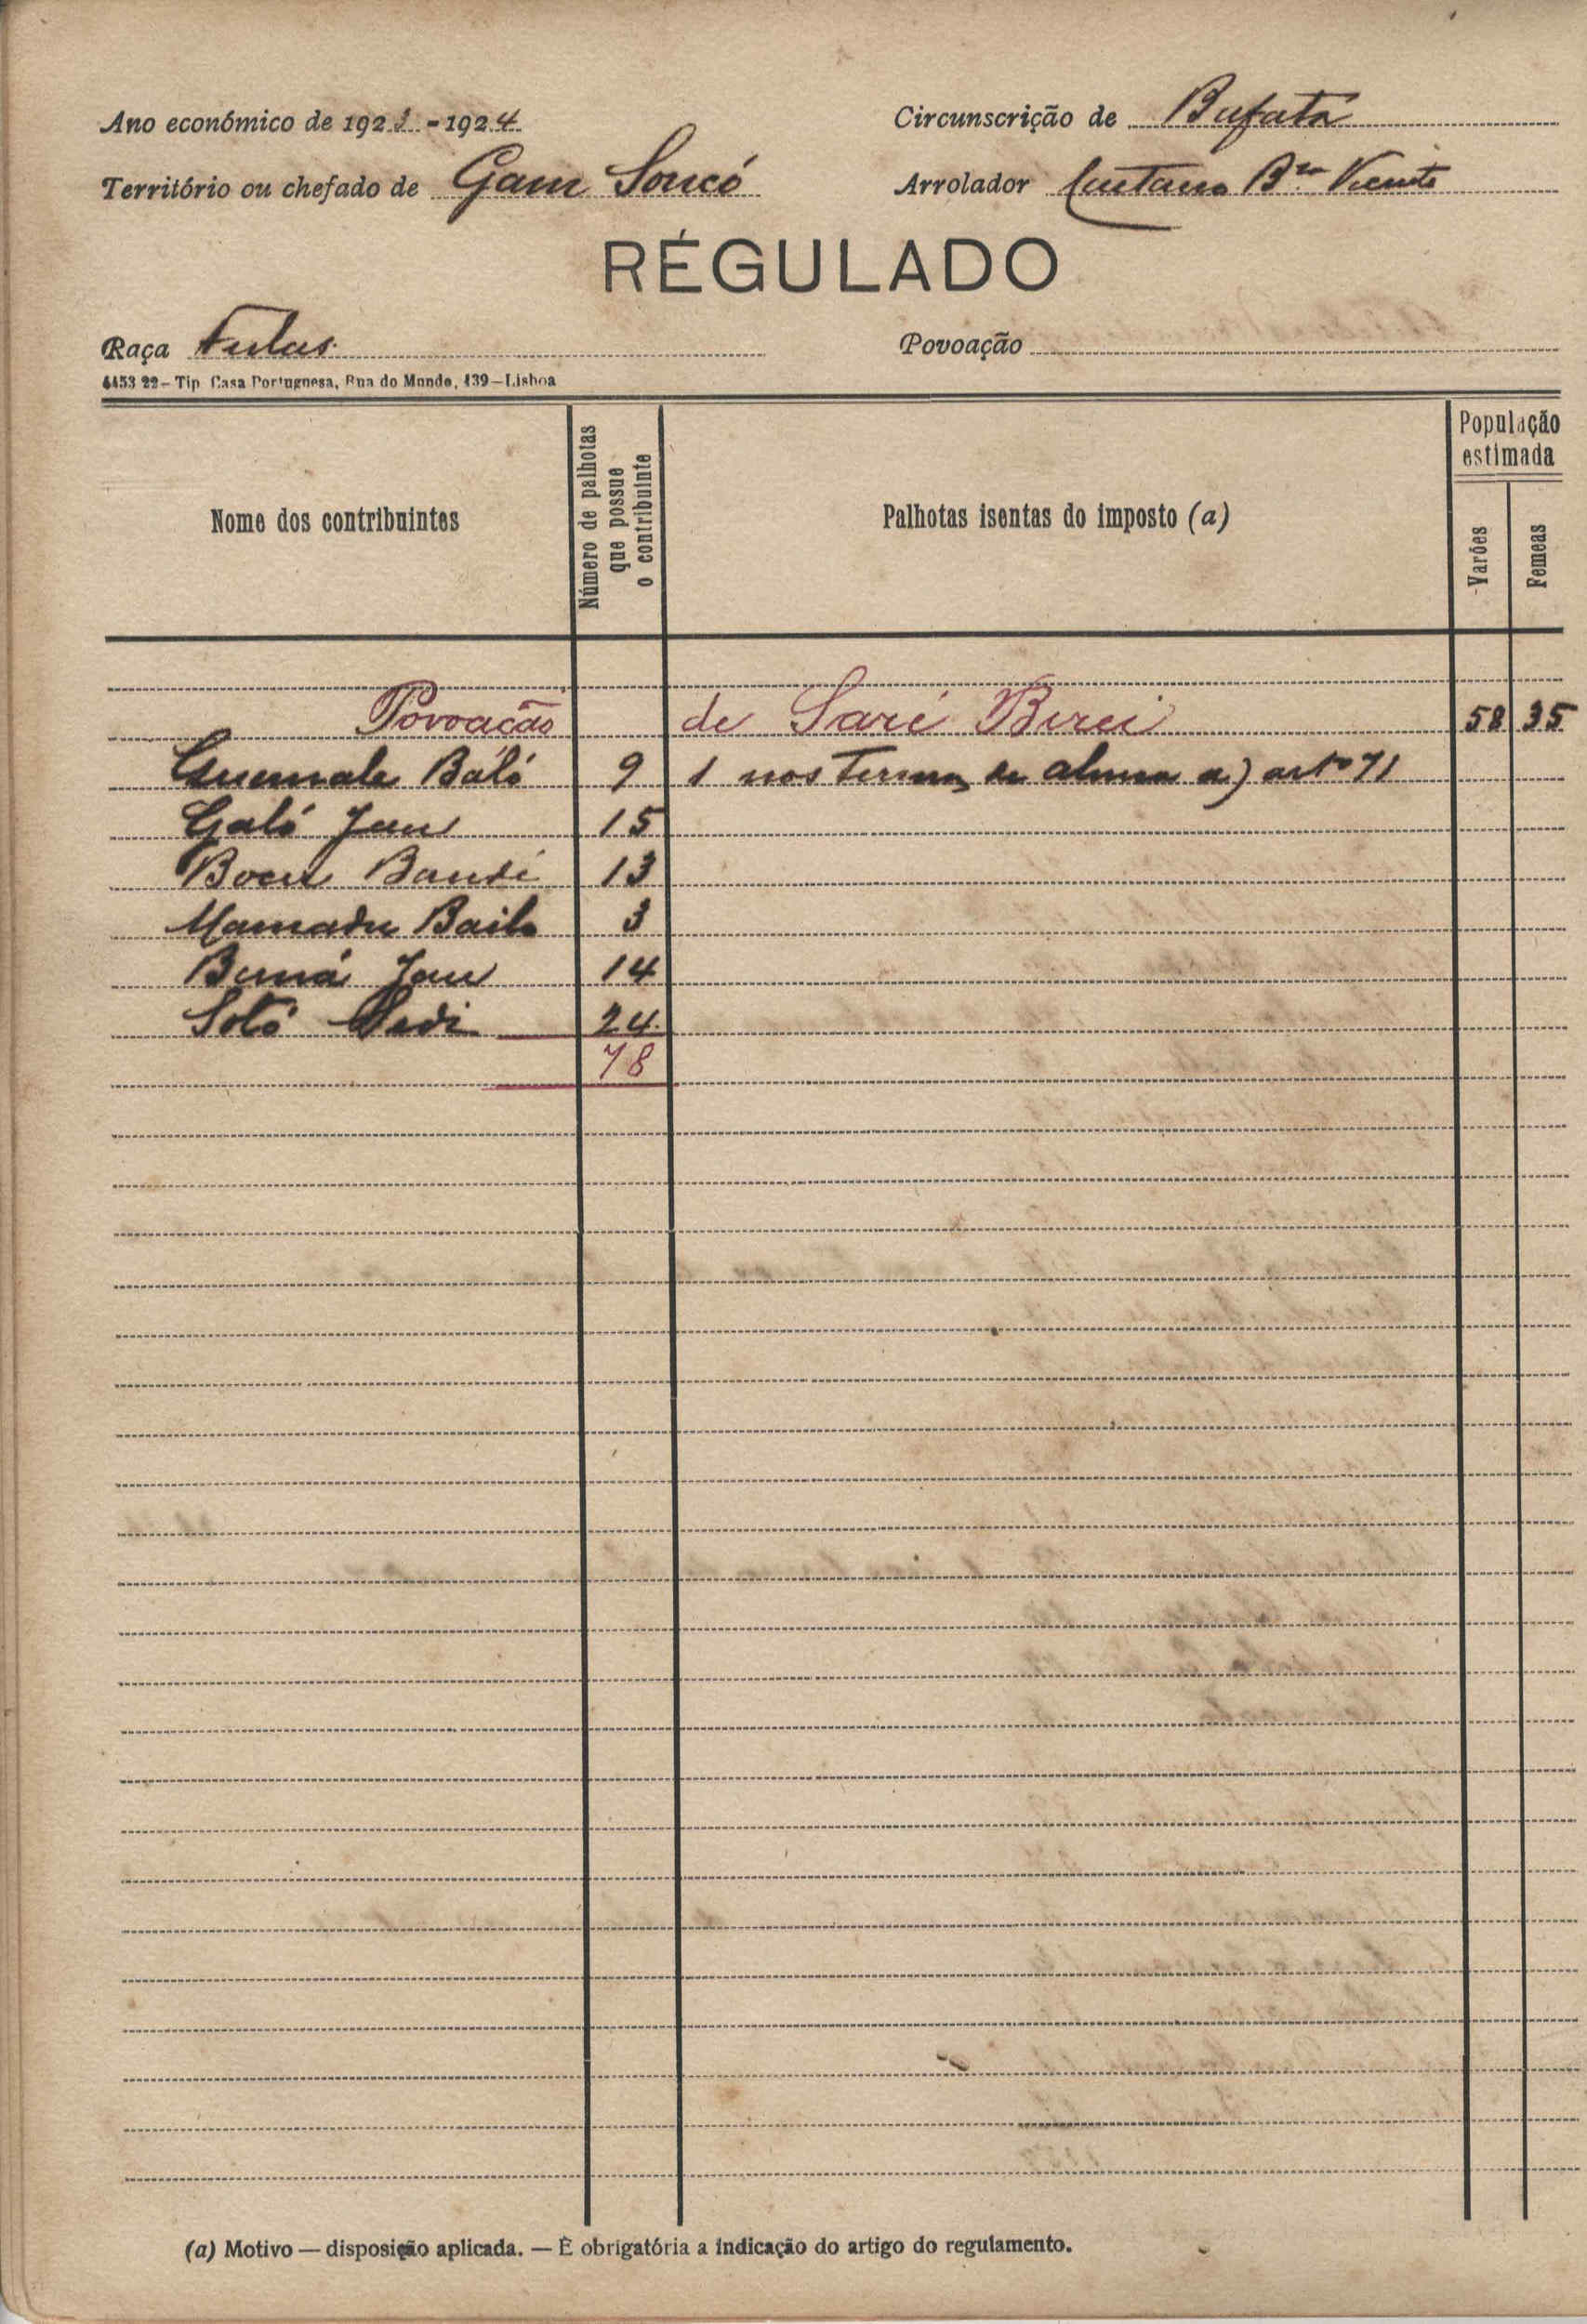 Ano económico de 1923-1924
Circunscrição de Bafatá
Território ou chefado de Gam Soncó
Arrolador Caetano Bto Vicente
RÉGULADO
Raça Fulas
Povoação
4453 22 – Tip Casa Portuguesa, Rua do Mundo, 139—Lisboa
Nome dos contribuintes
Número de palhotas que possue o contribuinte
Palhotas isentas do imposto (a)
População estimada
Varões
Femeas
Povoação de Saré Birei 58 35
Guemale Baló 9 1 nos termos da alinea a) arto 71
Galé Jau 15
Boen Bandé 13
Mamadu Bailo 3
Bumá Jau 14
Sotó 24
78
(a) Motivo — disposição aplicada. — É obrigatória a indicação do artigo do regulamento.